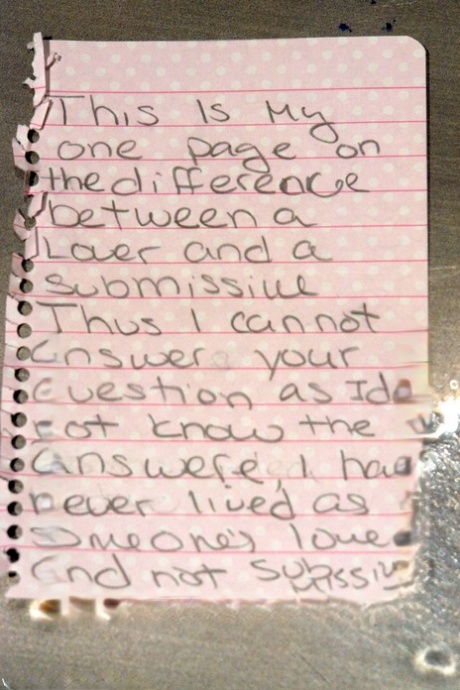 This Is My
one page on
the difference
between a
Lover and a
Submissive
Thus I cannot
answer your
question as I do
not know the
answere, I had
never lived as
Someone's lover
and not submissive